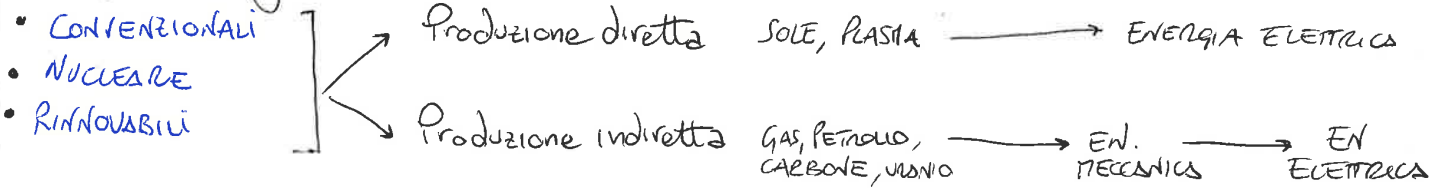 • CONVENZIONALI
• NUCLEARE
• RINNOVABILI
Produzione diretta SOLE, PLASMA → ENERGIA ELETTRICA
Produzione indiretta GAS, PETROLIO, → EN. → EN
CARBONE, URANIO MECCANICA ELETTRICA